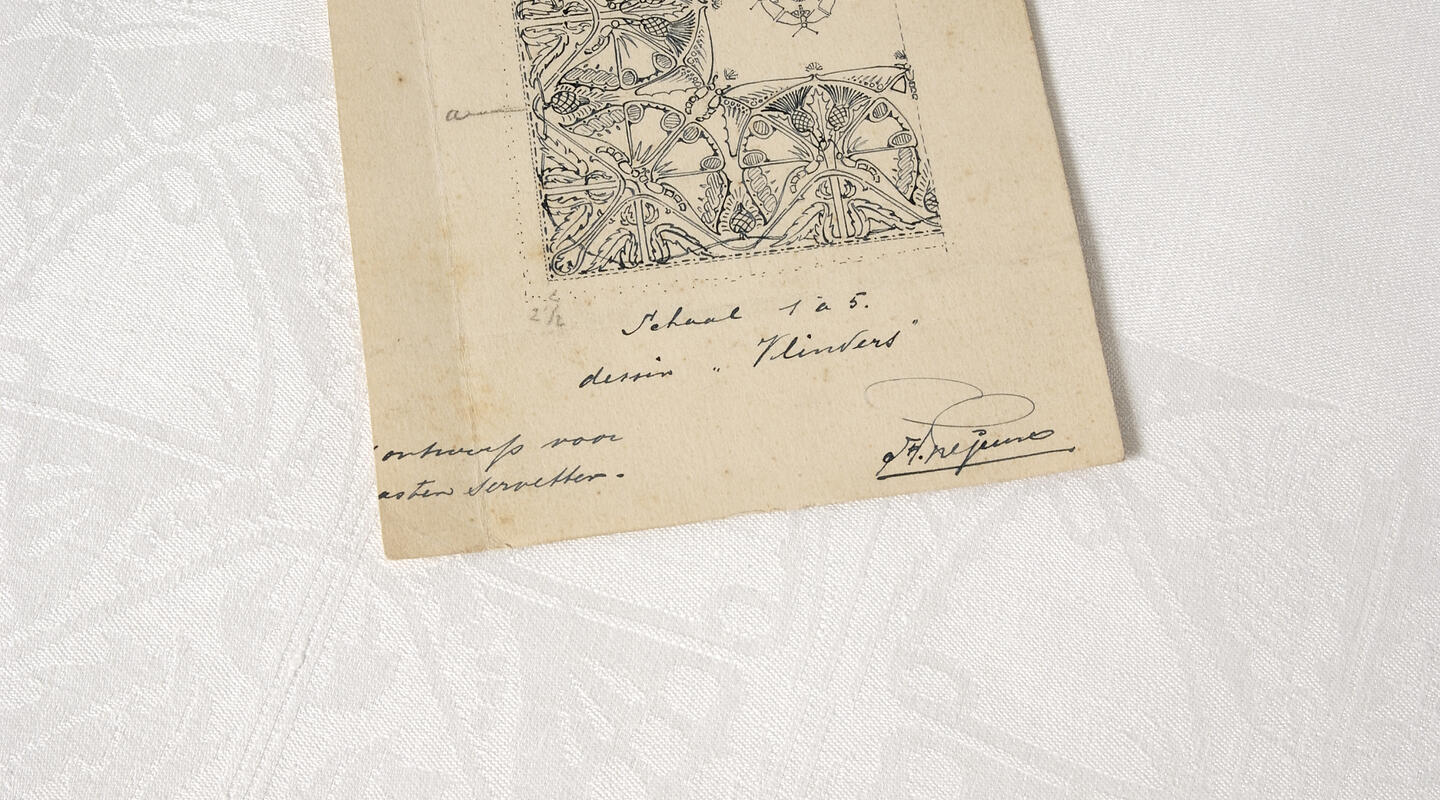 a
2 1/2
Schaal 1 à 5.
dessin „Vlinders"
ontwerp voor
asten servetten.